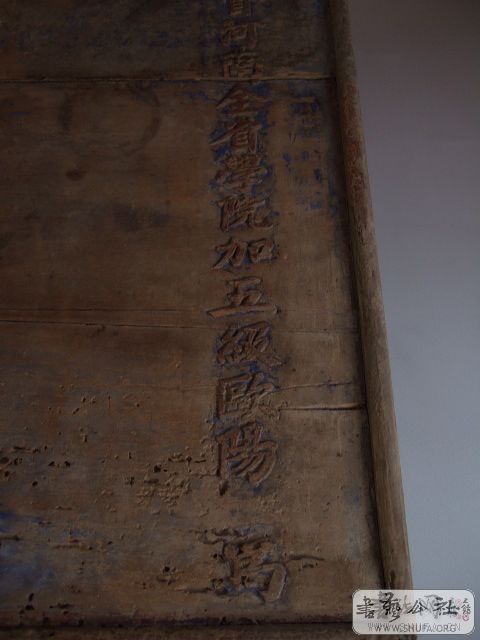 河南全省學院加五級歐陽 為
書藝公社
WWW.SHUFA.ORG